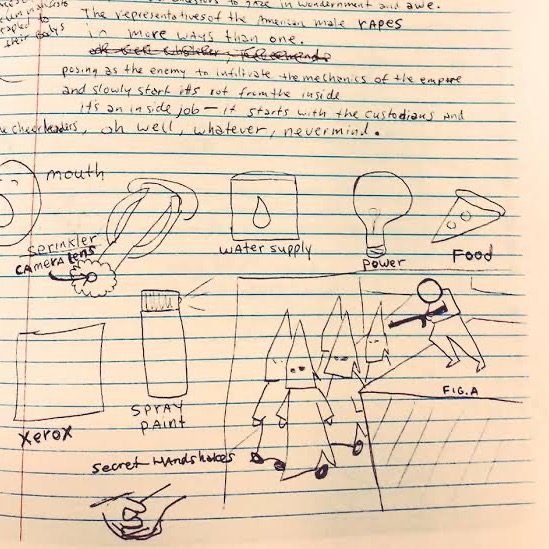 to gaze in wonderment and awe.
The representatives of the American male RAPES
in more ways than one.
posing as the enemy to infiltrate the mechanics of the empire
and slowly start its rot from the inside
it's an inside job — it starts with the custodians and
cheerleaders, oh well, whatever, nevermind.
mouth
Sprinkler
CAMERA Lens
WAter supply
power
Food
FIG. A
Xerox
SPRAY
PAINT
Secret HANdshakes